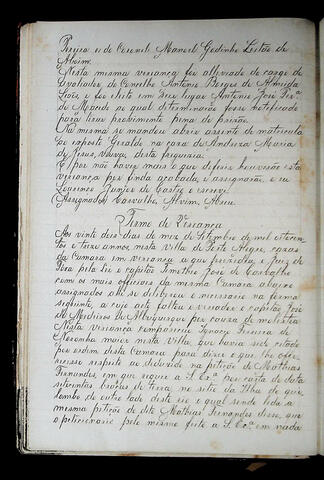 Pereira e do Coronel Manoel Godinho Leitão de
Alvim.
Nesta mesma vereança foi alliviado do cargo de
Avaliador do Concelho Antonio Borges de Almeida
Leães, e foi eleito em seu lugar Antonio José
de Macedo ao qual determinarão fosse notificado
para tirar provimento pena de prizão.
Na mesma se mandou abrir assento de matricula
ao exposto Geraldo na caza de Andreza Maria
de Jesus, viuva, desta freguezia.
E por não haver mais o que deferir houverão esta
vereança por finda acabada, e assignarão, e eu
Lourenço Junior de Castro o escrevi.
(Assignados) Carvalho, Alvim, Abreu.
Termo de Vereança
Aos vinte dois dias do mez de Setembro de mil oitocen-
tos e treze annos, nesta villa de Porto Alegre, cazas
da Camara em vereança a que prezidio o Juiz de
Fora pela Lei o capitão Timotheo José de Carvalho
com os mais officiaes da mesma Camara abaixo
assignados ahi se deliberou o necessario na forma
seguinte, a cujo acto faltou o vereador o capitão José
de Medeiros de Albuquerque por cauza de molestia
Nesta vereança compareceu Ignacio Ferreira de
Noronha maior nesta Villa, que havia sido citado
por ordem desta Camara para dizer o que lhe offe-
recesse respeito ao deduzido na petição de Mathias
Fernandes, em que requer a S. Ex.ª por carta de data
setecentas braças de terra no sitio da Ilha do qui-
lombo, de outro lado deste rio o qual sendo lida a
mesma petição do dito Mathias Fernandes disse, que
o peticionario pelo mesmo feito a S. Ex.ª em nada